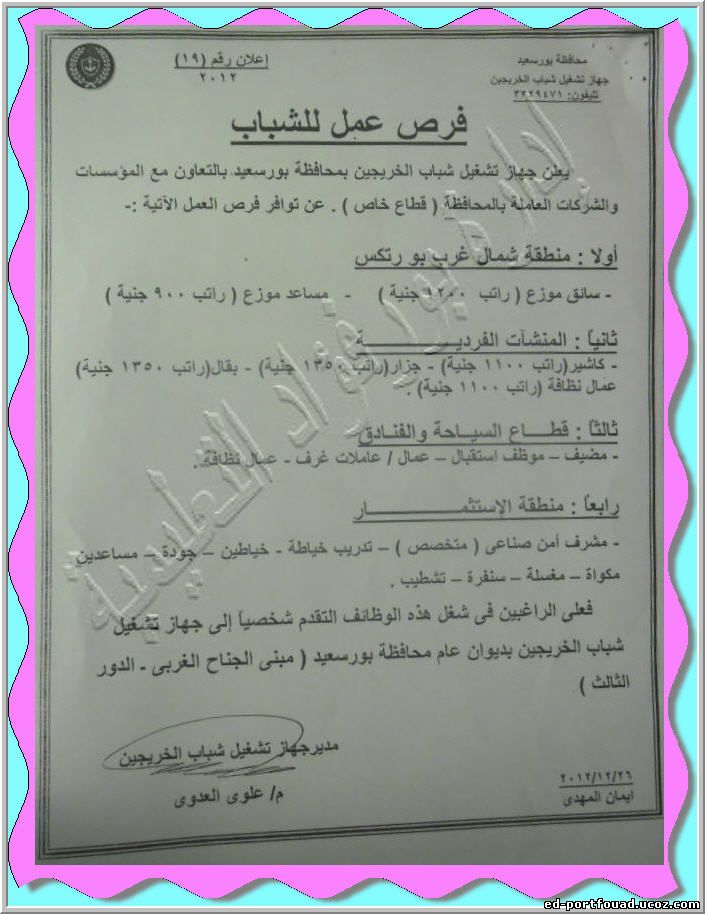 محافظة بورسعيد
جهاز تشغيل شباب الخريجين
تليفون: ٣٢٢٩٤٧١
إعلان رقم (١٩)
٢٠١٢
فرص عمل للشباب
يعلن جهاز تشغيل شباب الخريجين بمحافظة بورسعيد بالتعاون مع المؤسسات
والشركات العاملة بالمحافظة ( قطاع خاص ) . عن توافر فرص العمل الآتية :-
أولا : منطقة شمال غرب بو رتكس
- سائق موزع ( راتب ١٢٠٠ جنية ) - مساعد موزع ( راتب ٩٠٠ جنية )
ثانياً : المنشآت الفرديـــــــــة
- كاشير(راتب ١١٠٠ جنية) - جزار(راتب ١٣٥٠ جنية) - بقال(راتب ١٣٥٠ جنية)
عمال نظافة (راتب ١١٠٠ جنية) .
ثالثاً : قطـــاع السيـاحة والفنـادق
- مضيف – موظف استقبال – عمال / عاملات غرف - عمال نظافة .
رابعاً : منطقة الإستثمـــــــــــار
- مشرف أمن صناعى ( متخصص ) – تدريب خياطة - خياطين – جودة – مساعدين
مكواة – مغسلة – سنفرة – تشطيب .
فعلى الراغبين فى شغل هذه الوظائف التقدم شخصياً إلى جهاز تشغيل
شباب الخريجين بديوان عام محافظة بورسعيد ( مبنى الجناح الغربى - الدور
الثالث )
مديرجهاز تشغيل شباب الخريجين
م/ علوى العدوى
٢٠١٢/١٢/٢٦
ايمان المهدى
إدارة بورفؤاد التعليمية
ed-portfouad.ucoz.com